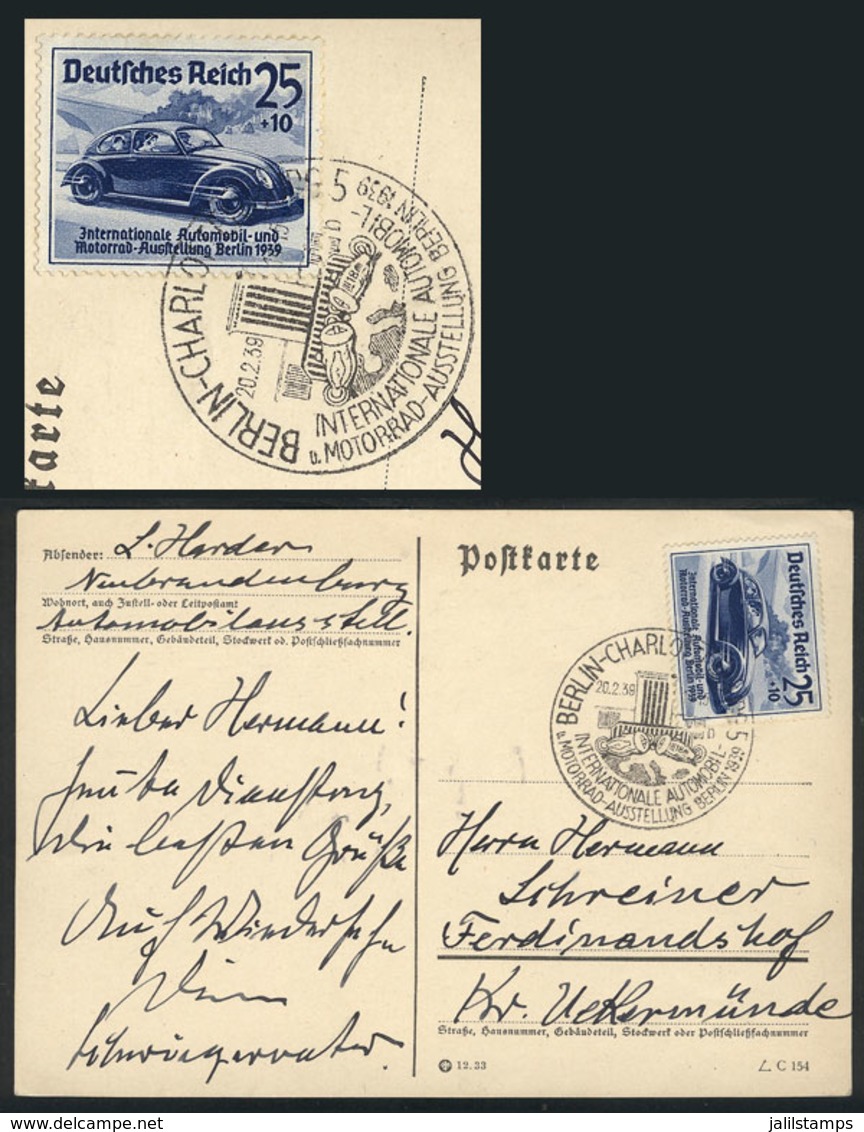 Deutsches Reich 25
+10
Internationale Automobil-und
Motorrad-Ausstellung Berlin 1939
BERLIN-CHARLO RG 5
20.2.39
INTERNATIONALE AUTOMOBIL-
u. MOTORRAD-AUSSTELLUNG BERLIN 1939
tarte
Absender: L. Harder
Neubrandenburg
Wohnort, auch Zustell- oder Leitpostamt
Automobilausstell.
Straße, Hausnummer, Gebäudeteil, Stockwerk od. Postschließfachnummer
Lieber Hermann!
heute Dienstag,
die besten Grüße
Auf Wiedersehn
Dein
Schwiegervater.
Postkarte
Deutsches Reich 25
+10
Internationale Automobil-und
Motorrad-Ausstellung Berlin 1939
BERLIN-CHARLO RG 5
20.2.39
INTERNATIONALE AUTOMOBIL-
u. MOTORRAD-AUSSTELLUNG BERLIN 1939
Herrn Hermann
Schreiner
Ferdinandshof
Kr. Ueckermünde
Straße, Hausnummer, Gebäudeteil, Stockwerk oder Postschließfachnummer
12.33
C 154
www.delcampe.net
jalilstamps